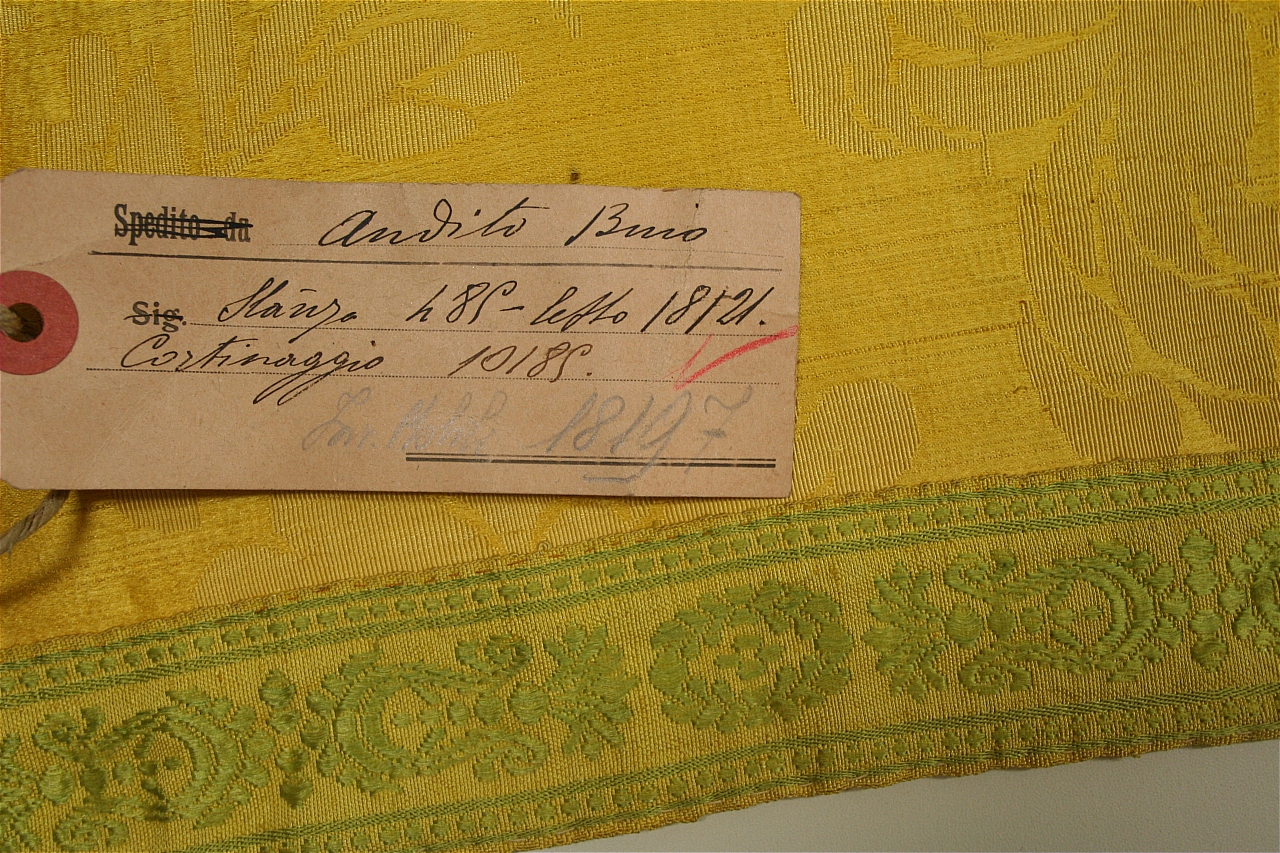 Spedito da Andito Buio
Sig. Stanza 485 - letto 18121.
Cortinaggio 10185.
18197